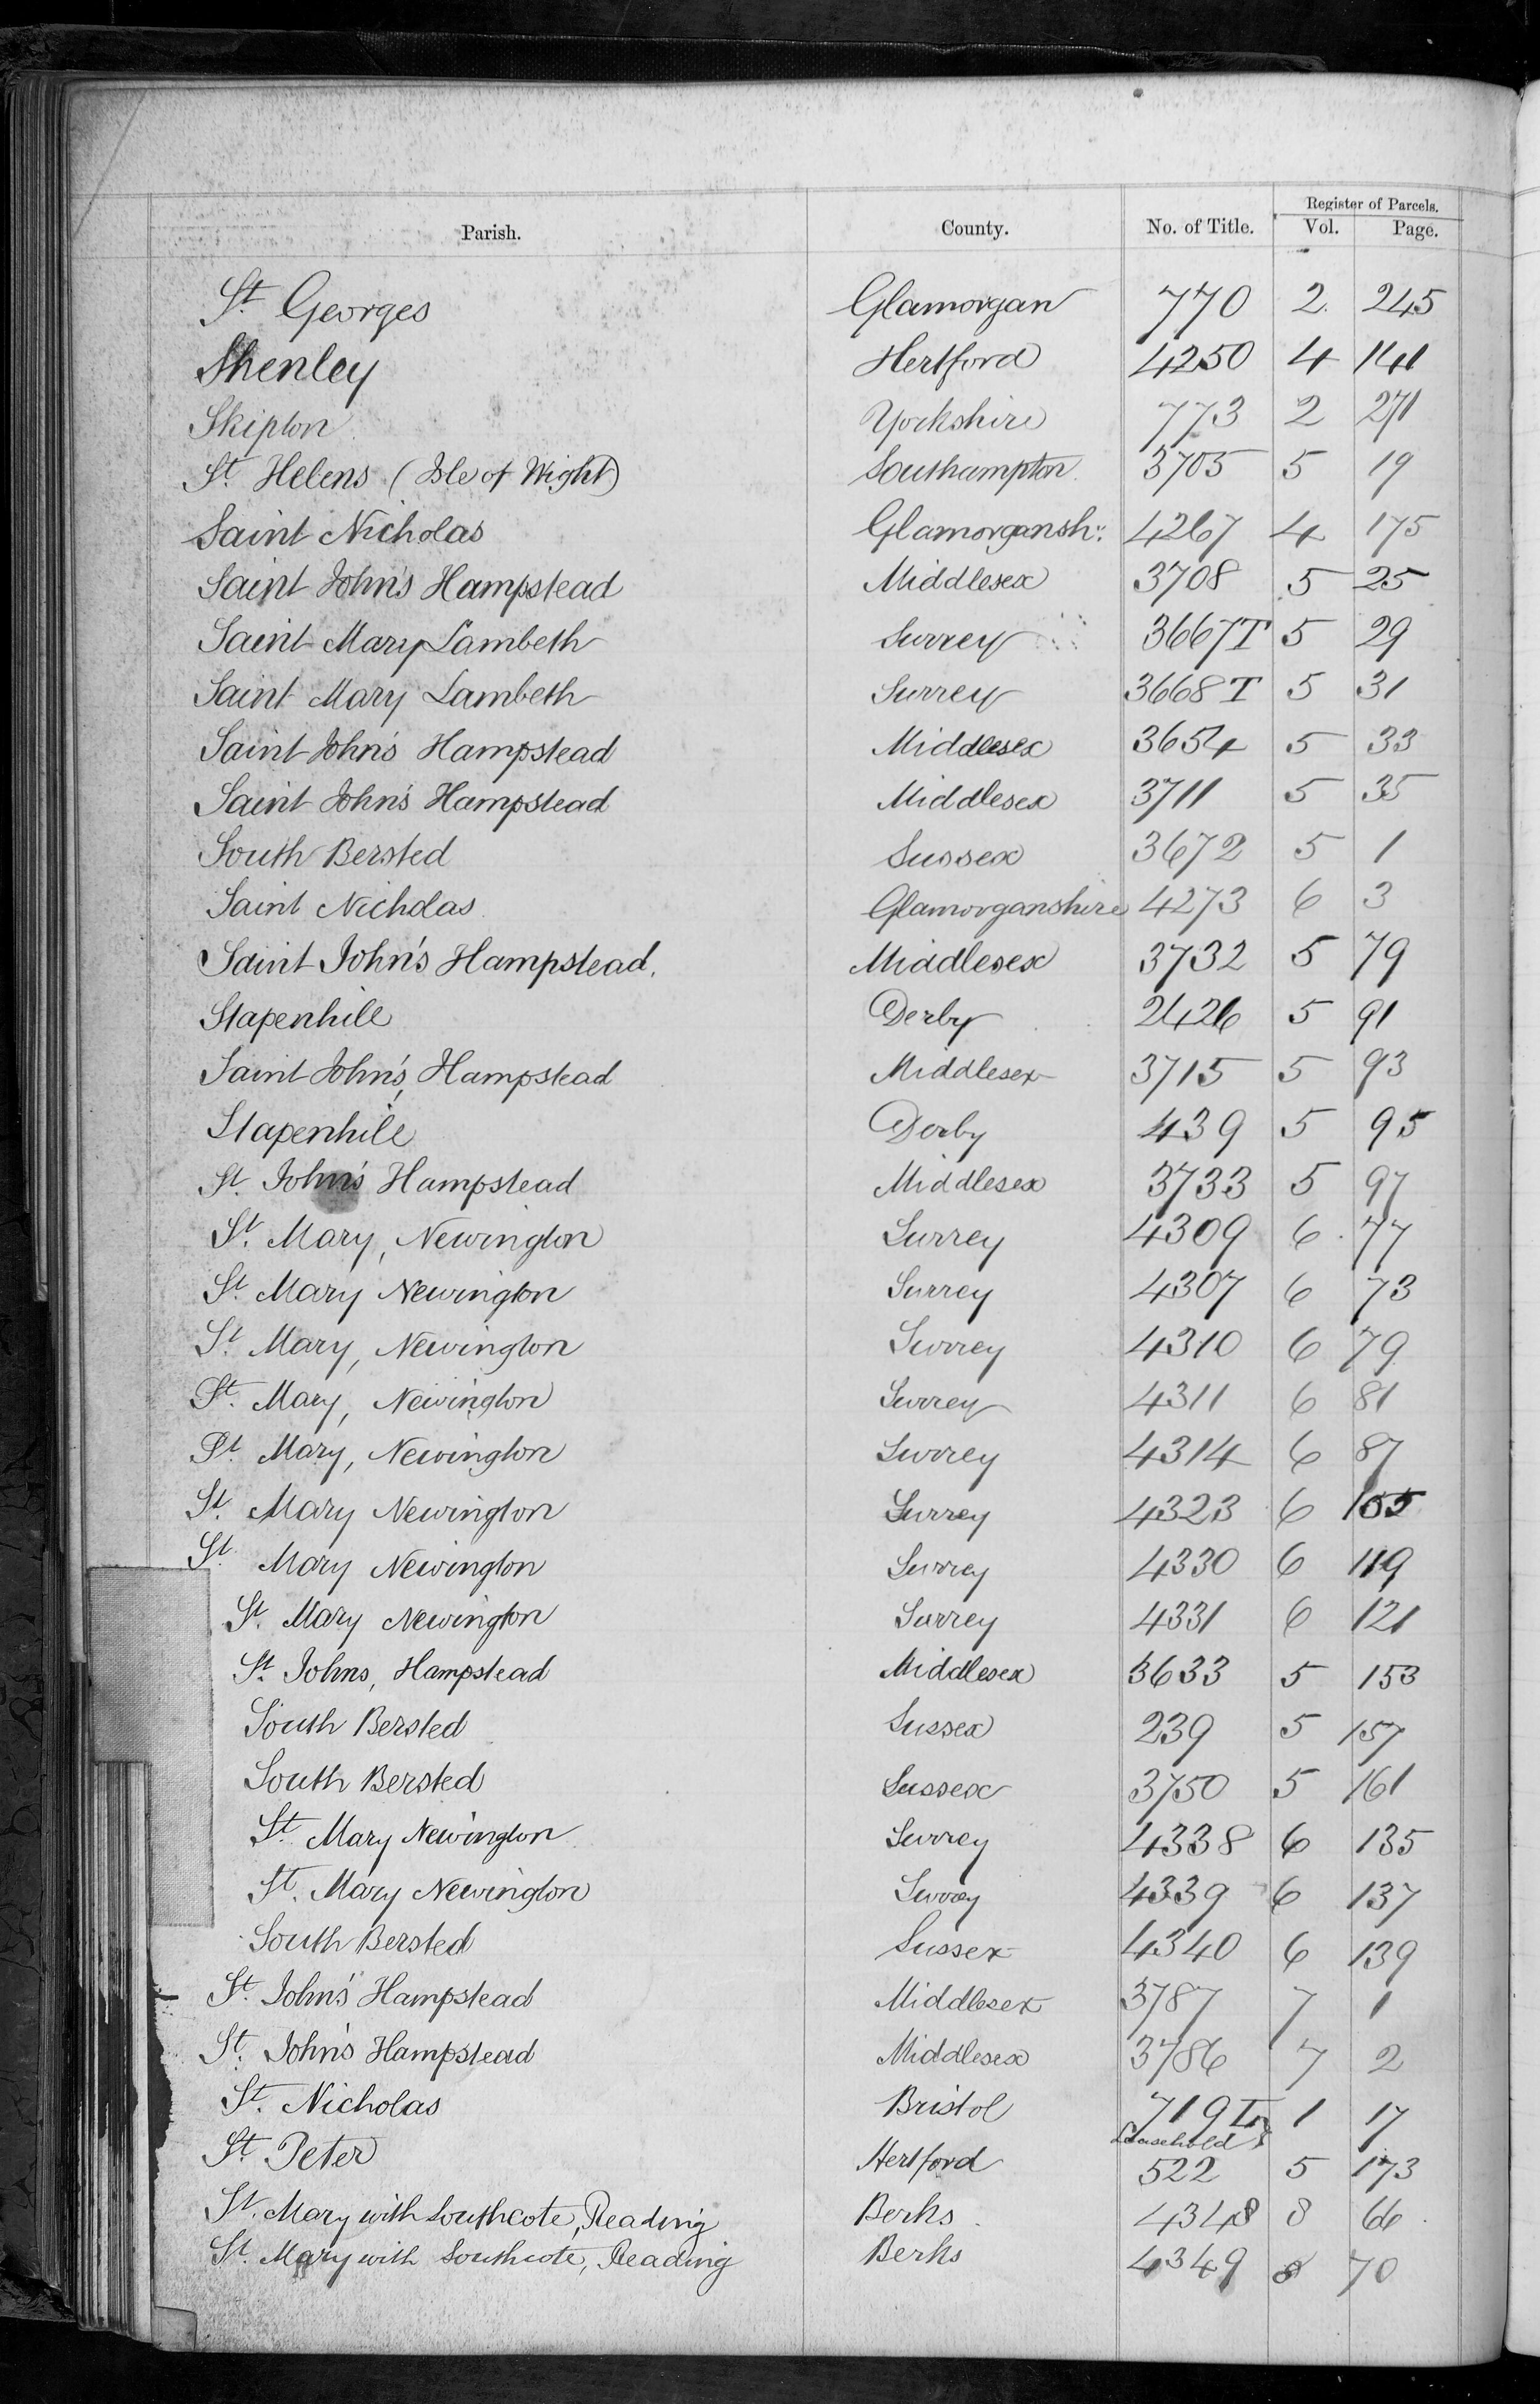 Parish. County. No. of Title. Register of Parcels. Vol. Page.
St. Georges Glamorgan 770 2 245
Shenley Hertford 4250 4 141
Skipton Yorkshire 773 2 271
St. Helens (Isle of Wight) Southampton 3705 5 19
Saint Nicholas Glamorgansh: 4267 4 175
Saint John's Hampstead Middlesex 3708 5 25
Saint Mary Lambeth Surrey 3667T 5 29
Saint Mary Lambeth Surrey 3668T 5 31
Saint John's Hampstead Middlesex 3654 5 33
Saint John's Hampstead Middlesex 3711 5 35
South Bersted Sussex 3672 5 1
Saint Nicholas Glamorganshire 4273 6 3
Saint John's Hampstead. Middlesex 3732 5 79
Stapenhill Derby 2426 5 91
Saint John's, Hampstead Middlesex 3715 5 93
Stapenhill Derby 439 5 95
St. John's Hampstead Middlesex 3733 5 97
St. Mary, Newington Surrey 4309 6 77
St. Mary Newington Surrey 4307 6 73
St. Mary, Newington Surrey 4310 6 79
St. Mary, Newington Surrey 4311 6 81
St. Mary, Newington Surrey 4314 6 87
St. Mary Newington Surrey 4323 6 105
St. Mary Newington Surrey 4330 6 119
St. Mary Newington Surrey 4331 6 121
St. Johns, Hampstead Middlesex 3633 5 153
South Bersted Sussex 239 5 157
South Bersted Sussex 3750 5 161
St. Mary Newington Surrey 4338 6 135
St. Mary Newington Surrey 4339 6 137
South Bersted Sussex 4340 6 139
St. John's Hampstead Middlesex 3787 7 1
St. John's Hampstead Middlesex 3786 7 2
St. Nicholas Bristol 719 1 17
Leasehold
St. Peter Hertford 522 5 173
St. Mary with Southcote, Reading Berks 4348 8 66
St. Mary with Southcote, Reading Berks 4349 8 70